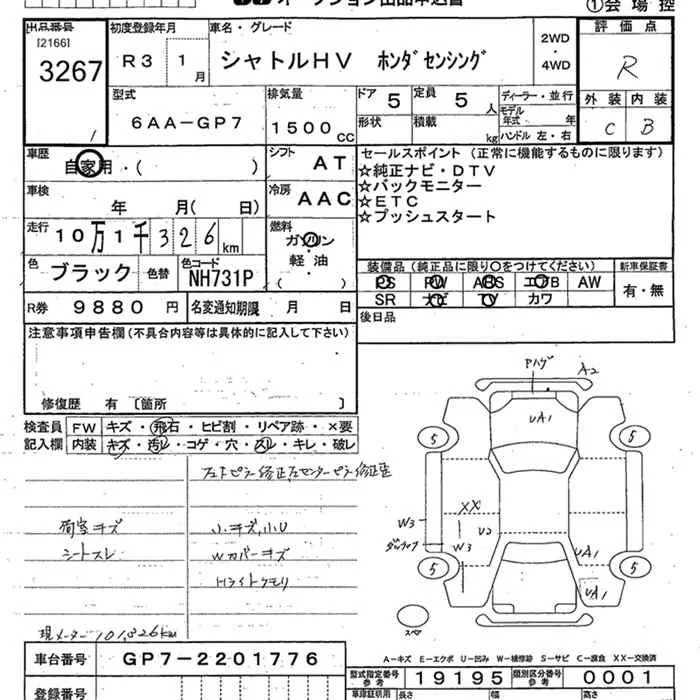 オークション出品申込書
①会場控
出品番号
[2166]
3267
初度登録年月
R3 1月
車名・グレード
シャトルHV ホンダセンシング
2WD・4WD
評価点
R
外装 内装
C B
型式
6AA-GP7
排気量
1500cc
ドア 5
定員 5人
形状
積載 kg
ディーラー・並行
モデル年式 年
ハンドル 左・右
車歴
自家用・( )
シフト AT
車検
年 月( 日)
冷房 AAC
セールスポイント (正常に機能するものに限ります)
☆純正ナビ・DTV
☆バックモニター
☆ETC
☆プッシュスタート
走行
10万1千326km
燃料
ガソリン
軽・油
色 ブラック
色替
色コード NH731P
装備品 (純正品に限り○をつけてください)
PS PW ABS エアB AW
SR ナビ TV カワ
新車保証書
有・無
R券 9880円
名変通知期限 月 日
後日品
注意事項申告欄(不具合内容等は具体的に記入して下さい)
修復歴 有 [箇所
検査員記入欄
FW キズ・飛石・ヒビ割・リペア跡・×要
内装 キズ・汚レ・コゲ・穴・スレ・キレ・破レ
左センターピラー修正歪
荷室キズ
シートスレ
小キズ,小U
Wカバーキズ
Hライトクモリ
現メーター101,326km
Pハゲ
A2
UA1
5
5
XX
W3
U2
W3
UA1
5
5
UA1
スペア
A-キズ E-エクボ U-凹み W-補修跡 S-サビ C-腐食 XX-交換済
車台番号 GP7-2201776
型式指定番号 参考 19195
類別区分番号 参考 0001
登録番号
車庫証明用 長さ 幅 高さ